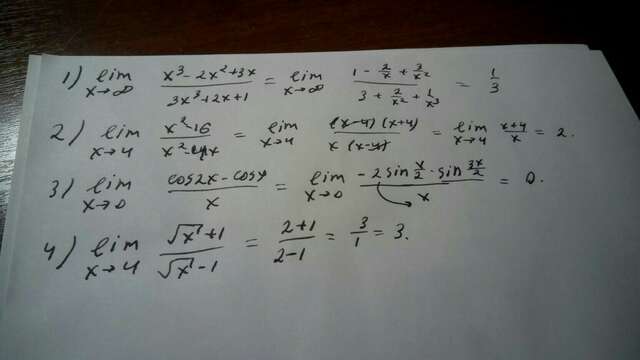 1) lim x→∞ (x³ - 2x² + 3x)/(3x³ + 2x + 1) = lim x→∞ (1 - 2/x + 3/x²)/(3 + 2/x² + 1/x³) = 1/3
2) lim x→4 (x² - 16)/(x² - 4x) = lim x→4 ((x-4)(x+4))/(x(x-4)) = lim x→4 (x+4)/x = 2.
3) lim x→0 (cos2x - cosx)/x = lim x→0 (-2 sin x/2 · sin 3x/2)/x = 0.
4) lim x→4 (√x + 1)/(√x - 1) = (2+1)/(2-1) = 3/1 = 3.